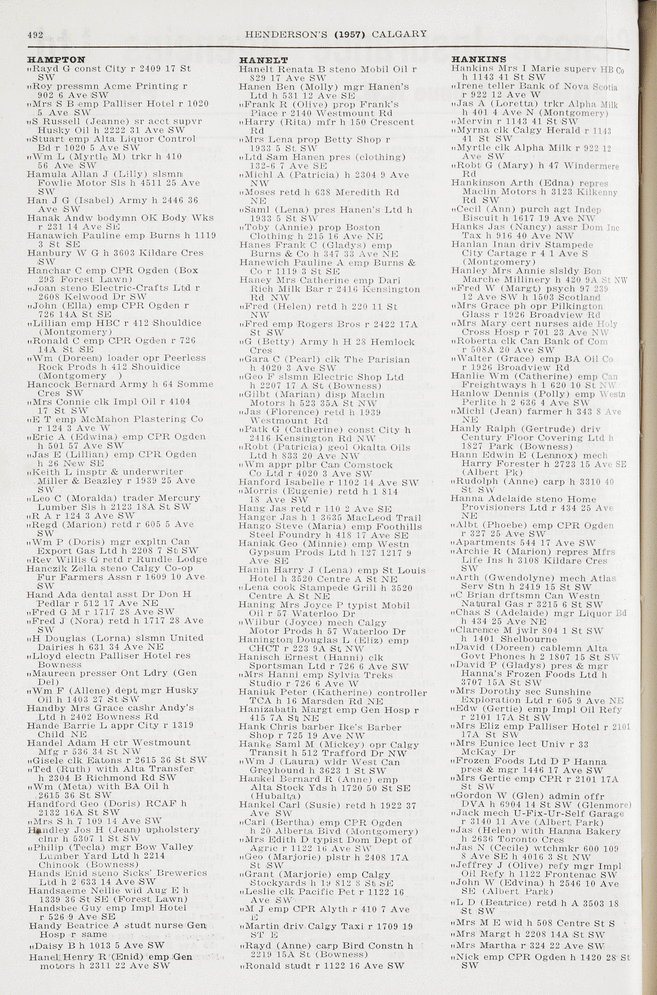 492
HENDERSON'S (1957) CALGARY
HAMPTON
"Rayd G const City r 2409 17 St
SW
"Roy pressmn Acme Printing r
902 6 Ave SW
"Mrs S B emp Palliser Hotel r 1020
5 Ave SW
"S Russell (Jeanne) sr acct supvr
Husky Oil h 2222 31 Ave SW
"Stuart emp Alta Liquor Control
Bd r 1020 5 Ave SW
"Wm L (Myrtle M) trkr h 410
56 Ave SW
Hamula Allan J (Lilly) slsmn
Fowlie Motor Sls h 4511 25 Ave
SW
Han J G (Isabel) Army h 2446 36
Ave SW
Hanak Andw bodymn OK Body Wks
r 231 14 Ave SE
Hanawich Pauline emp Burns h 1119
3 St SE
Hanbury W G h 3603 Kildare Cres
SW
Hanchar C emp CPR Ogden (Box
293 Forest Lawn)
"Joan steno Electric-Crafts Ltd r
2608 Kelwood Dr SW
"John (Ella) emp CPR Ogden r
726 14A St SE
"Lillian emp HBC r 412 Shouldice
(Montgomery)
"Ronald C emp CPR Ogden r 726
14A St SE
"Wm (Doreen) loader opr Peerless
Rock Prods h 412 Shouldice
(Montgomery )
Hancock Bernard Army h 64 Somme
Cres SW
"Mrs Connie clk Impl Oil r 4104
17 St SW
"E T emp McMahon Plastering Co
r 124 3 Ave W
"Eric A (Edwina) emp CPR Ogden
h 501 57 Ave SW
"Jas E (Lillian) emp CPR Ogden
h 26 New SE
"Keith L insptr & underwriter
Miller & Beazley r 1939 25 Ave
SW
"Leo C (Moralda) trader Mercury
Lumber Sls h 2123 18A St SW
"R A r 124 3 Ave SW
"Regd (Marion) retd r 605 5 Ave
SW
"Wm P (Doris) mgr expltn Can
Export Gas Ltd h 2208 7 St SW
"Rev Willis G retd r Rundle Lodge
Hanczik Zella steno Calgy Co-op
Fur Farmers Assn r 1609 10 Ave
SW
Hand Ada dental asst Dr Don H
Pedlar r 512 17 Ave NE
"Fred G M r 1717 28 Ave SW
"Fred J (Nora) retd h 1717 28 Ave
SW
"H Douglas (Lorna) slsmn United
Dairies h 631 34 Ave NE
"Lloyd electn Palliser Hotel res
Bowness
"Maureen presser Ont Ldry (Gen
Del)
"Wm F (Allene) dept mgr Husky
Oil h 1403 27 St SW
Handby Mrs Grace cashr Andy's
Ltd h 2402 Bowness Rd
Hande Barrie L appr City r 1319
Child NE
Handel Adam H ctr Westmount
Mfg r 536 34 St NW
"Gisele clk Eatons r 2615 36 St SW
"Ted (Ruth) with Alta Transfer
h 2304 B Richmond Rd SW
"Wm (Meta) with BA Oil h
2615 36 St SW
Handford Geo (Doris) RCAF h
2132 16A St SW
"Mrs S h 7 109 14 Ave SW
Handley Jos H (Jean) upholstery
clnr h 5307 1 St SW
"Philip (Tecla) mgr Bow Valley
Lumber Yard Ltd h 2214
Chinook (Bowness)
Hands Enid steno Sicks' Breweries
Ltd h 2 633 14 Ave SW
Handsaeme Nellie wid Aug E h
1339 36 St SE (Forest Lawn)
Handsbee Guy emp Impl Hotel
r 526 9 Ave SE
Handy Beatrice A studt nurse Gen
Hosp r same
"Daisy B h 1013 5 Ave SW
Hanel Henry R (Enid) emp Gen
motors h 2311 22 Ave SW
HANELT
Hanelt Renata B steno Mobil Oil r
829 17 Ave SW
Hanen Ben (Molly) mgr Hanen's
Ltd h 531 12 Ave SE
"Frank R (Olive) prop Frank's
Place r 2140 Westmount Rd
"Harry (Rita) mfr h 150 Crescent
Rd
"Mrs Lena prop Betty Shop r
1933 5 St SW
"Ltd Sam Hanen pres (clothing)
132-6 7 Ave SE
"Michl A (Patricia) h 2304 9 Ave
NW
"Moses retd h 638 Meredith Rd
NE
"Saml (Lena) pres Hanen's Ltd h
1933 5 St SW
"Toby (Annie) prop Boston
Clothing h 215 16 Ave NE
Hanes Frank C (Gladys) emp
Burns & Co h 347 33 Ave NE
Hanewich Pauline A emp Burns &
Co r 1119 3 St SE
Haney Mrs Catherine emp Dari
Rich Milk Bar r 2416 Kensington
Rd NW
"Fred (Helen) retd h 220 11 St
NW
"Fred emp Rogers Bros r 2422 17A
St SW
"G (Betty) Army H 28 Hemlock
Cres
"Gara C (Pearl) clk The Parisian
h 4020 3 Ave SW
"Geo F slsmn Electric Shop Ltd
h 2207 17 A St (Bowness)
"Gilbt (Marian) disp Maclin
Motors h 523 35A St NW
"Jas (Florence) retd h 1939
Westmount Rd
"Patk G (Catherine) const City h
2416 Kensington Rd NW
"Robt (Patricia) geol Okalta Oils
Ltd h 833 20 Ave NW
"Wm appr plbr Can Comstock
Co Ltd r 4020 3 Ave SW
Hanford Isabelle r 1102 14 Ave SW
"Morris (Eugenie) retd h 1 814
18 Ave SW
Hang Jas retd r 110 2 Ave SE
Hanger Jas h 1 3635 MacLeod Trail
Hango Steve (Maria) emp Foothills
Steel Foundry h 418 17 Ave SE
Haniak Geo (Minnie) emp Westn
Gypsum Prods Ltd h 127 1217 9
Ave SE
Hanin Harry J (Lena) emp St Louis
Hotel h 3520 Centre A St NE
"Lena cook Stampede Grill h 3520
Centre A St NE
Haning Mrs Joyce P typist Mobil
Oil r 57 Waterloo Dr
"Wilbur (Joyce) mech Calgy
Motor Prods h 57 Waterloo Dr
Hanington Douglas L (Eliz) emp
CHCT r 223 9A St NW
Hanisch Ernest (Hanni) clk
Sportsman Ltd r 726 6 Ave SW
"Mrs Hanni emp Sylvia Treks
Studio r 726 6 Ave W
Haniuk Peter (Katherine) controller
TCA h 16 Marsden Rd NE
Hanizabath Margt emp Gen Hosp r
415 7A St NE
Hank Chris barber Ike's Barber
Shop r 725 19 Ave NW
Hanke Saml M (Mickey) opr Calgy
Transit h 512 Trafford Dr NW
"Wm J (Laura) widr West Can
Greyhound h 3623 1 St SW
Hankel Bernard R (Anne) emp
Alta Stock Yds h 1720 50 St SE
(Hubalta)
Hankel Carl (Susie) retd h 1922 37
Ave SW
"Carl (Bertha) emp CPR Ogden
h 20 Alberta Blvd (Montgomery)
"Mrs Edith D typist Dom Dept of
Agric r 1122 16 Ave SW
"Geo (Marjorie) plstr h 2408 17A
St SW
"Grant (Marjorie) emp Calgy
Stockyards h 19 812 8 St SE
"Leslie clk Pacific Pet r 1122 16
Ave SW
"M J emp CPR Alyth r 410 7 Ave
E
"Martin driv Calgy Taxi r 1709 19
ST E
"Rayd (Anne) carp Bird Constn h
2219 15A St (Bowness)
"Ronald studt r 1122 16 Ave SW
HANKINS
Hankins Mrs I Marie superv HB Co
h 1143 41 St SW
"Irene teller Bank of Nova Scotia
r 922 12 Ave W
"Jas A (Loretta) trkr Alpha Milk
h 401 4 Ave N (Montgomery)
"Mervin r 1143 41 St SW
"Myrna clk Calgy Herald r 1143
41 St SW
"Myrtle clk Alpha Milk r 922 12
Ave SW
"Robt G (Mary) h 47 Windermere
Rd
Hankinson Arth (Edna) repres
Maclin Motors h 3123 Kilkenny
Rd SW
"Cecil (Ann) purch agt Indep
Biscuit h 1617 19 Ave NW
Hanks Jas (Nancy) assr Dom Inc
Tax h 916 40 Ave NW
Hanlan Inan driv Stampede
City Cartage r 4 1 Ave S
(Montgomery)
Hanley Mrs Annie slsldy Bon
Marche Millinery h 420 9A St NW
"Fred W (Margt) psych 97 239
12 Ave SW h 1503 Scotland
"Mrs Grace ph opr Pilkington
Glass r 1926 Broadview Rd
"Mrs Mary cert nurses aide Holy
Cross Hosp r 701 23 Ave NW
"Roberta clk Can Bank of Com
r 508A 20 Ave SW
"Walter (Grace) emp BA Oil Co
r 1926 Broadview Rd
Hanlie Wm (Catherine) emp Can
Freightways h 1 620 10 St NW
Hanlow Dennis (Polly) emp Westn
Perlite h 2 636 4 Ave SW
"Michl (Jean) farmer h 343 8 Ave
NE
Hanly Ralph (Gertrude) driv
Century Floor Covering Ltd h
1827 Park (Bowness)
Hann Edwin E (Lennox) mech
Harry Forester h 2723 15 Ave SE
(Albert Pk)
"Rudolph (Anna) carp h 3310 40
St SW
Hanna Adelaide steno Home
Provisioners Ltd r 434 25 Ave
NE
"Albt (Phoebe) emp CPR Ogden
r 327 25 Ave SW
"Apartments 544 17 Ave SW
"Archie R (Marion) repres Mfrs
Life Ins h 3108 Kildare Cres
SW
"Arth (Gwendolyne) mech Atlas
Serv Stn h 2419 15 St SW
"C Brian drftsmn Can Westn
Natural Gas r 3215 6 St SW
"Chas S (Adelaide) mgr Liquor Bd
h 434 25 Ave NE
"Clarence M jwlr 804 1 St SW
h 1401 Shelbourne
"David (Doreen) cablemn Alta
Govt Phones h 2 1807 15 St SW
"David P (Gladys) pres & mgr
Hanna's Frozen Foods Ltd h
3707 15A St SW
"Mrs Dorothy sec Sunshine
Exploration Ltd r 605 9 Ave NE
"Edw (Gertie) emp Impl Oil Refy
r 2101 17A St SW
"Mrs Eliz emp Palliser Hotel r 2101
17A St SW
"Mrs Eunice lect Univ r 33
McKay Dr
"Frozen Foods Ltd D P Hanna
pres & mgr 1446 17 Ave SW
"Mrs Gertie emp CPR r 2101 17A
St SW
"Gordon W (Glen) admin offr
DVA h 6904 14 St SW (Glenmore)
"Jack mech U-Fix-Ur-Self Garage
r 3140 11 Ave (Albert Park)
"Jas (Helen) with Hanna Bakery
h 2636 Toronto Cres
"Jas N (Cecile) wtchmkr 600 109
8 Ave SE h 4016 3 St NW
"Jeffrey J (Olive) refy mgr Impl
Oil Refy h 1122 Frontenac SW
"John W (Edvina) h 2546 10 Ave
SE (Albert Park)
"L D (Beatrice) retd h A 3503 18
St SW
"Mrs M E wid h 508 Centre St S
"Mrs Margt h 2208 14A St SW
"Mrs Martha r 324 22 Ave SW
"Nick emp CPR Ogden h 1420 28 St
SW